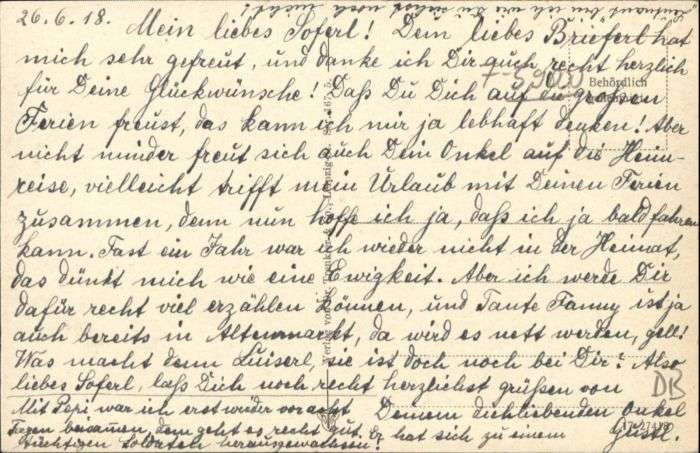 26.6.18. Mein liebes Soferl! Dein liebes Brieferl hat
mich sehr gefreut, und danke ich Dir auch recht herzlich
für Deine Glückwünsche! Daß Du Dich auf die großen
Ferien freust, das kann ich mir ja lebhaft denken! Aber
nicht minder freut sich auch Dein Onkel auf die Heim-
reise, vielleicht trifft mein Urlaub mit Deinen Ferien
zusammen, denn nun hoffe ich ja, daß ich ja bald fahren
kann. Fast ein Jahr war ich wieder nicht in der Heimat,
das dünkt mich wie eine Ewigkeit. Aber ich werde Dir
dafür recht viel erzählen können, und Tante Fanny ist ja
auch bereits in Altenmarkt, da wird es nett werden, gell!
Was macht denn Luiserl, sie ist doch noch bei Dir? Also
liebes Soferl, laß Dich noch recht herzlichst grüßen von
Deinem dichliebenden Onkel
Gustl.
Mit Pepi war ich erst wieder vor acht
Tagen beisammen, dem geht es recht gut. Er hat sich zu einem
tüchtigen Soldaten herausgewachsen!
Leutnant bin ich wie Du siehst noch nicht!
Behördlich
DB